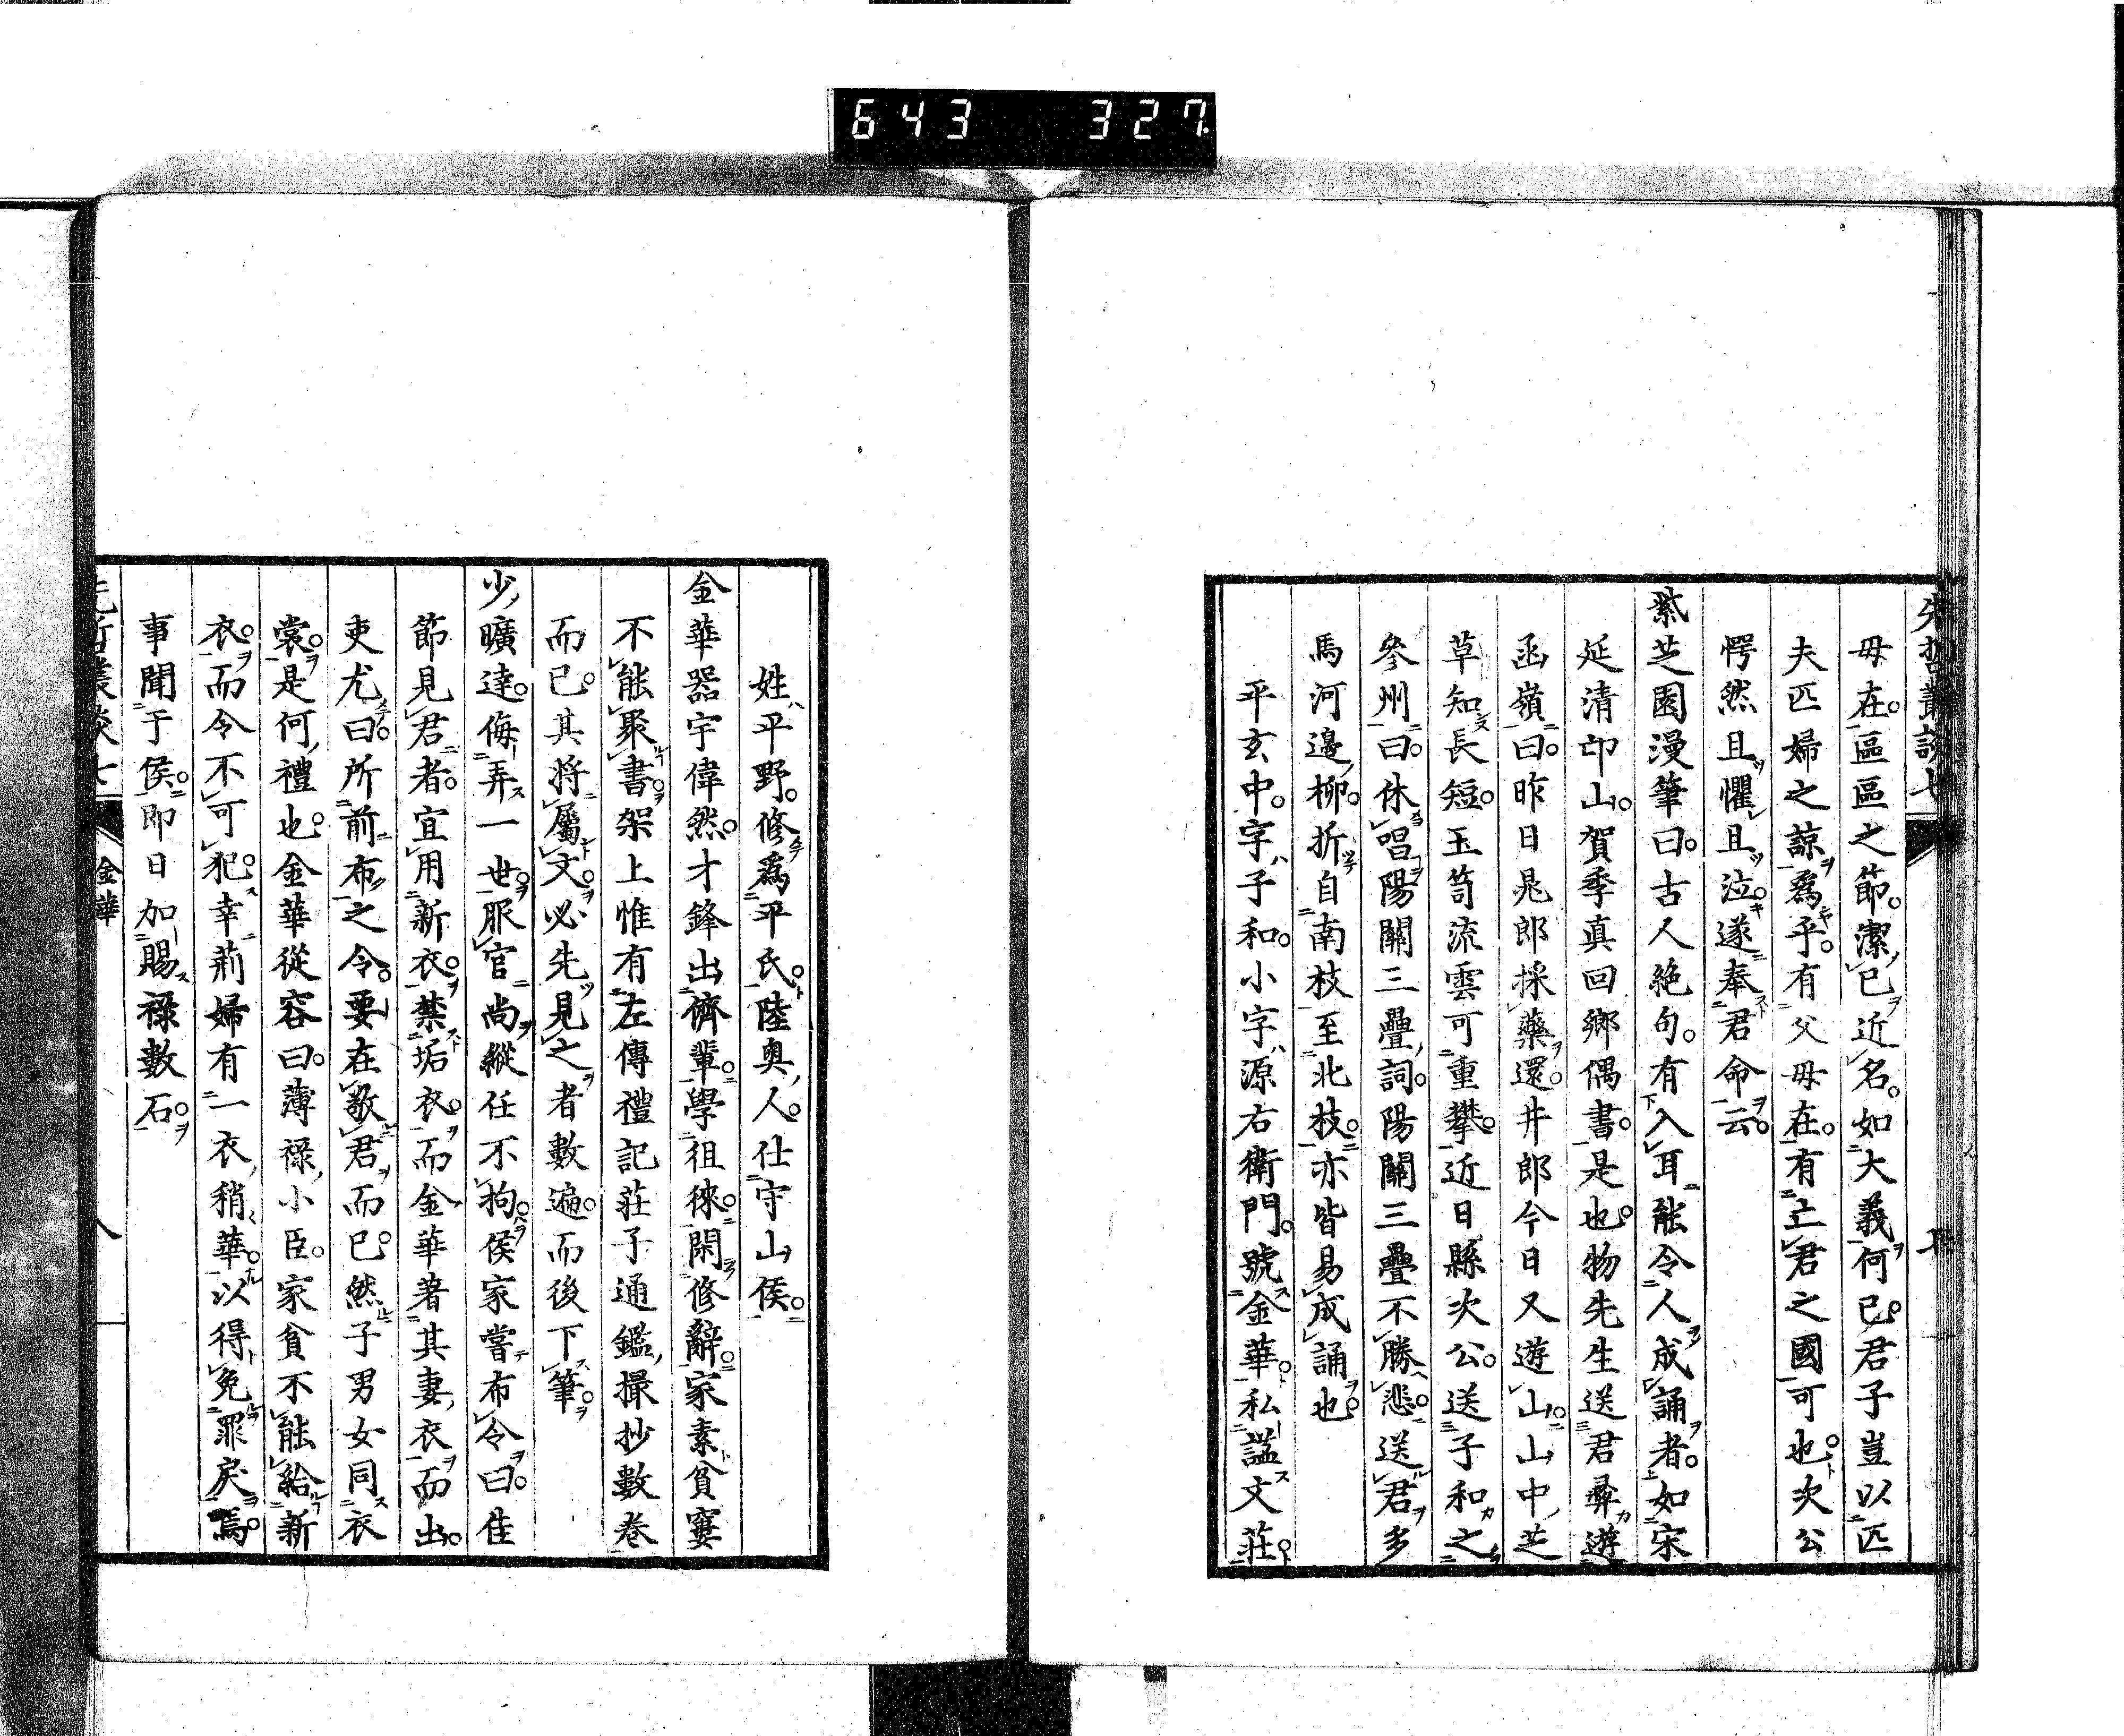 643 327
先哲叢談七
母在。區區之節。潔已近名。如大義何已。君子豈以匹
夫匹婦之諒爲乎。有父母在。有亡君之國可也。次公
愕然且懼且泣。遂奉君命云。
紫芝園漫筆曰。古人絶句。有入耳能令人成誦者。如宋
延清卬山。賀季真回鄉偶書。是也。物先生送君彝遊
函嶺曰。昨日晁郎採藥還。井郎今日又遊山。山中芝
草知長短。玉笥流雲可重攀。近日縣次公。送子和之
參州曰。休唱陽關三疊詞。陽關三疊不勝悲。送君多
馬河邊柳。折自南枝至北枝。亦皆易成誦也。
平玄中。字子和。小字源右衛門。號金華。私謚文莊。
姓平野。修爲平氏。陸奥人。仕守山侯。
金華器宇偉然。才鋒出儕輩。學徂徠。閑修辭。家素貧窶
不能聚書。架上惟有左傳禮記莊子通鑑撮抄數卷
而已。其將屬文。必先見之者數遍。而後下筆。
少曠達。侮弄一世。服官尚縱任不拘。侯家嘗布令曰。佳
節見君者。宜用新衣。禁垢衣。而金華著其妻衣而出。
吏尤曰。所前布之令。要在敬君而已。然子男女同衣
裳。是何禮也。金華從容曰。薄祿小臣。家貧不能給新
衣。而令不可犯。幸荊婦有一衣稍華。以得免罪戾焉。
事聞于侯。即日加賜祿數石。
先哲叢談七 金華 八